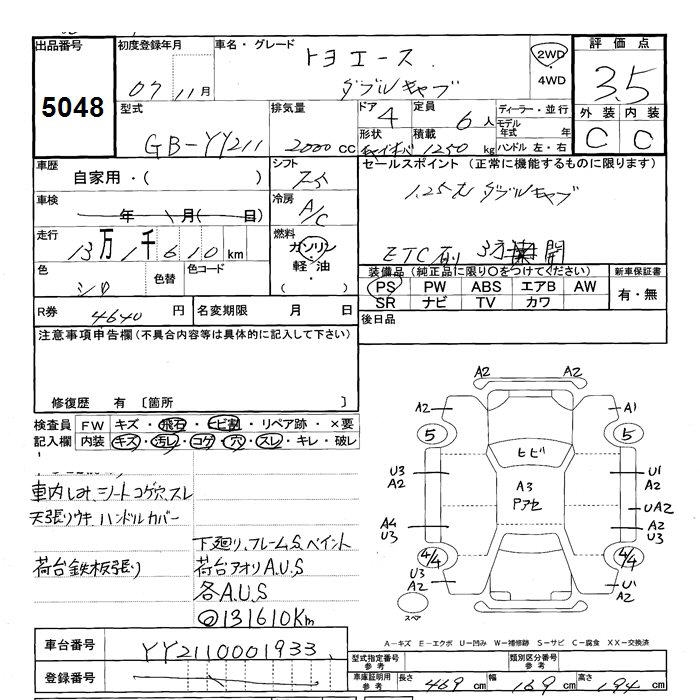 出品番号
5048
初度登録年月
07 11月
車名・グレード
トヨエース
ダブルキャブ
2WD
・
4WD
評価点
3.5
外装 内装
C C
型式
GB-YY211
排気量
2000 cc
ドア
4
定員
6人
形状
積載
1250 kg
ディーラー・並行
モデル
年式 年
ハンドル 左・右
車歴
自家用・( )
シフト
車検
年 月( 日)
冷房
A/C
走行
13万1千610 km
燃料
ガソリン
軽油
( )
色
シロ
色替
色コード
R券 4640 円
名変期限 月 日
セールスポイント (正常に機能するものに限ります)
1.25t ダブルキャブ
ETC有 3方開
装備品 (純正品に限り○をつけてください)
新車保証書
PS PW ABS エアB AW
SR ナビ TV カワ
有・無
後日品
注意事項申告欄(不具合内容等は具体的に記入して下さい)
修復歴 有 〔箇所 〕
検査員
記入欄
FW キズ・飛石・ヒビ割・リペア跡・×要
内装 キズ・汚レ・コゲ・穴・スレ・キレ・破レ
車内しみ、シートコゲ穴、スレ
天張りウキ ハンドルカバー
荷台鉄板張り
下廻り、フレームS、ペイント
荷台アオリA.U.S
各A.U.S
◎131610Km
A2 A2
A2 A1
5 5
ヒビ
U3
A2
A3
Pアセ
U1
A2
UA2
A4
U3
A2
U3
4/4 4/4
U3
A2
U1
A2
スペア
A-キズ E-エクボ U-凹み W-補修跡 S-サビ C-腐食 XX-交換済
車台番号
YY2110001933
登録番号
型式指定番号
参考
類別区分番号
参考
車庫証明用
参考
長さ 469 cm 幅 169 cm 高さ 194 cm